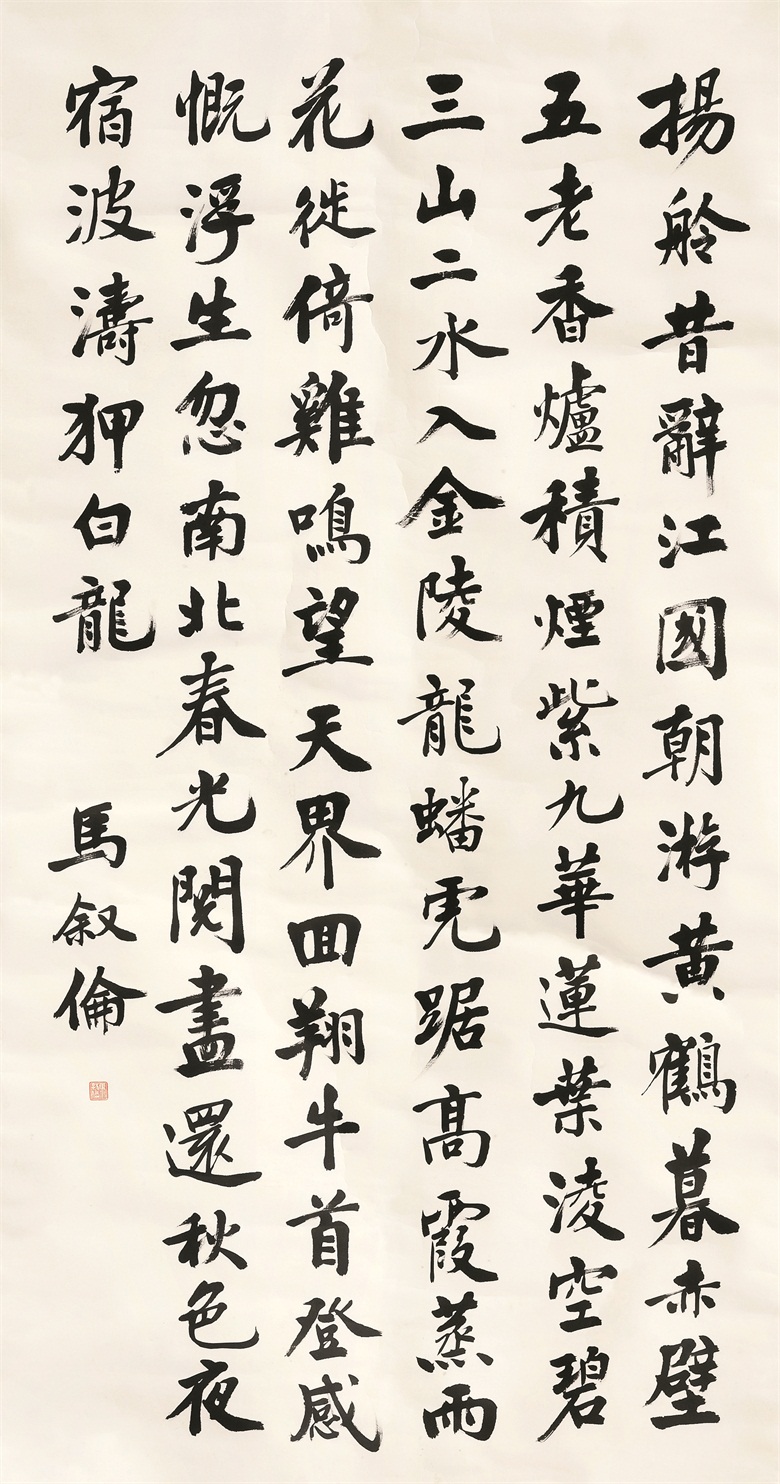 揚舲昔辭江國朝游黃鶴暮赤壁
五老香爐積煙紫九華蓮葉淩空碧
三山二水入金陵龍蟠虎踞高霞蒸雨
花徙倚雞鳴望天界回翔牛首登感
慨浮生忽南北春光閱盡還秋色夜
宿波濤狎白龍
馬叙倫